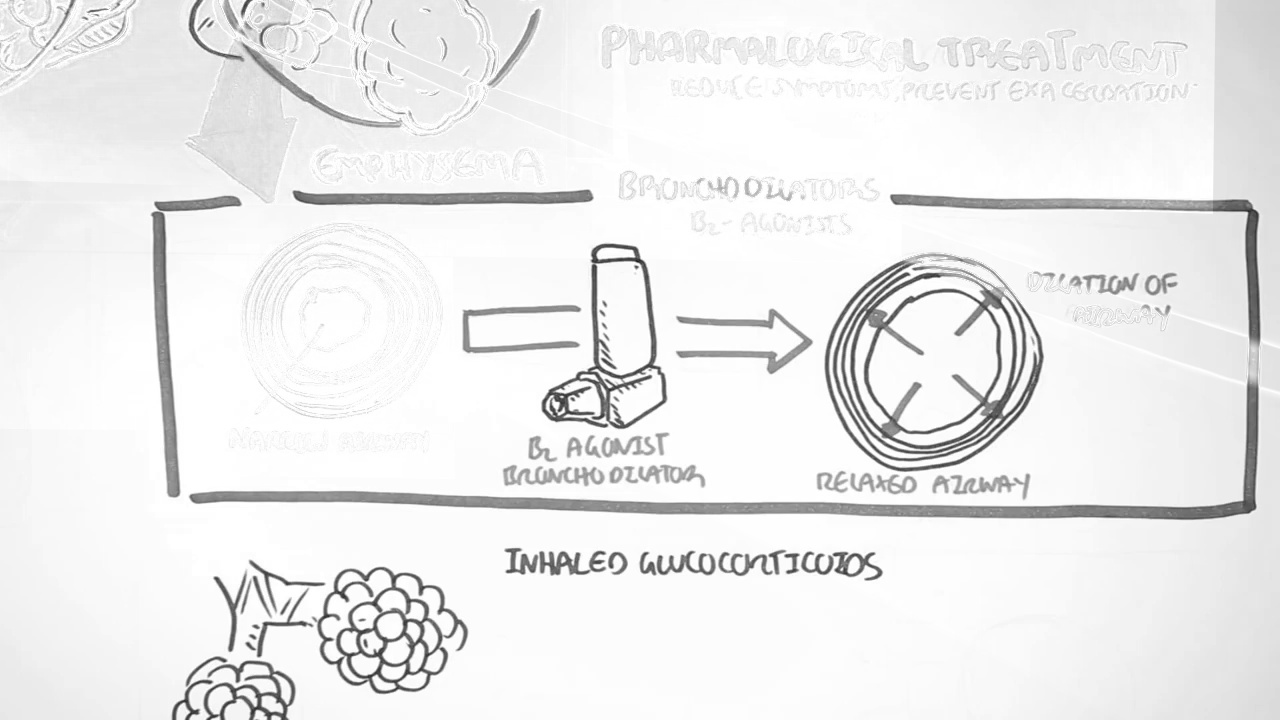 PHARMALOGICAL TREATMENT
REDUCE SYMPTOMS, PREVENT EXACERBATION
EMPHYSEMA
BRONCHODILATORS
B2- AGONISTS
DILATION OF
AIRWAY
NARROW AIRWAY
B2 AGONIST
BRONCHODILATOR
RELAXED AIRWAY
INHALED GLUCOCORTICOIDS